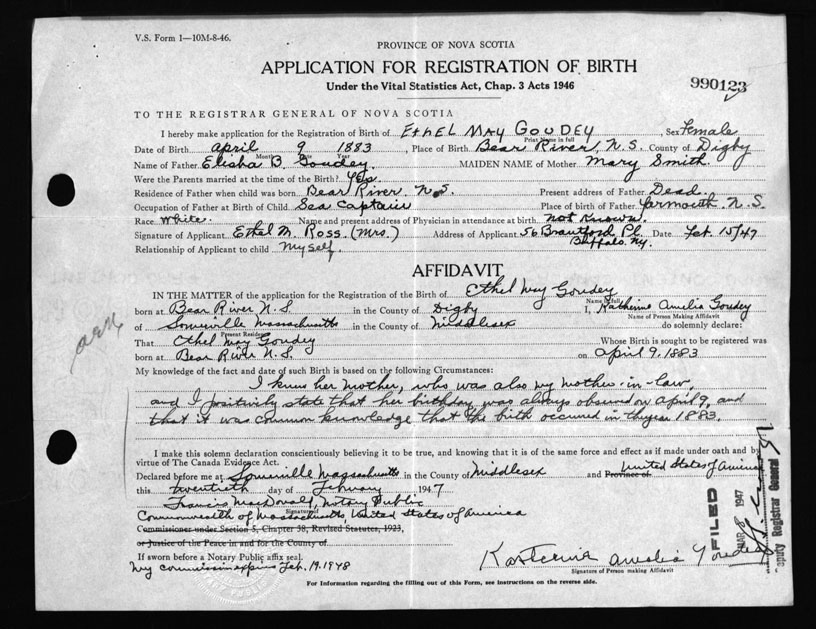 V.S. Form 1—10M-8-46.
PROVINCE OF NOVA SCOTIA
APPLICATION FOR REGISTRATION OF BIRTH
Under the Vital Statistics Act, Chap. 3 Acts 1946
990123
TO THE REGISTRAR GENERAL OF NOVA SCOTIA
I hereby make application for the Registration of Birth of ETHEL MAY GOUDEY, Sex Female
Print Name in full
Date of Birth April 9 1883, Place of Birth Bear River, N.S. County of Digby
Month Date Year
Name of Father Elisha B. Goudey. MAIDEN NAME of Mother Mary Smith.
Were the Parents married at the time of the Birth? Yes.
Residence of Father when child was born Bear River. N.S. Present address of Father Dead.
Occupation of Father at Birth of Child Sea Captain Place of birth of Father Yarmouth. N.S.
Race White. Name and present address of Physician in attendance at birth Not Known.
Signature of Applicant Ethel M. Ross. (Mrs.) Address of Applicant 56 Brantford Pl. Buffalo. Ny. Date Feb. 15/47
Relationship of Applicant to child Myself.
AFFIDAVIT
IN THE MATTER of the application for the Registration of the Birth of Ethel May Goudey
Name in full
born at Bear River N.S. in the County of Digby I, Katherine Amelia Goudey
Name of Person Making Affidavit
of Somerville Massachusetts in the County of Middlesex do solemnly declare:
Present Residence
That Ethel May Goudey Whose Birth is sought to be registered was
born at Bear River N.S. on April 9, 1883
My knowledge of the fact and date of such Birth is based on the following Circumstances:
I knew her mother, who was also my mother-in-law,
and I positively state that her birthday was always observed on April 9, and
that it was common knowledge that the birth occured in the year 1883.
I make this solemn declaration conscientiously believing it to be true, and knowing that it is of the same force and effect as if made under oath and by
virtue of The Canada Evidence Act.
Declared before me at Somerville Massachusetts in the County of Middlesex and Province of United States of America
this twentieth day of February 1947
Francis MacDonald, Notary Public
Signature
Commonwealth of Massachusetts, United States of America
Commissioner under Section 5, Chapter 38, Revised Statutes, 1923,
or Justice of the Peace in and for the County of
If sworn before a Notary Public affix seal.
My commission expires Feb. 19. 1948
Katherine Amelia Goudey
Signature of Person making Affidavit
For Information regarding the filling out of this Form, see instructions on the reverse side.
FILED
MAR 8 1947
Deputy Registrar General